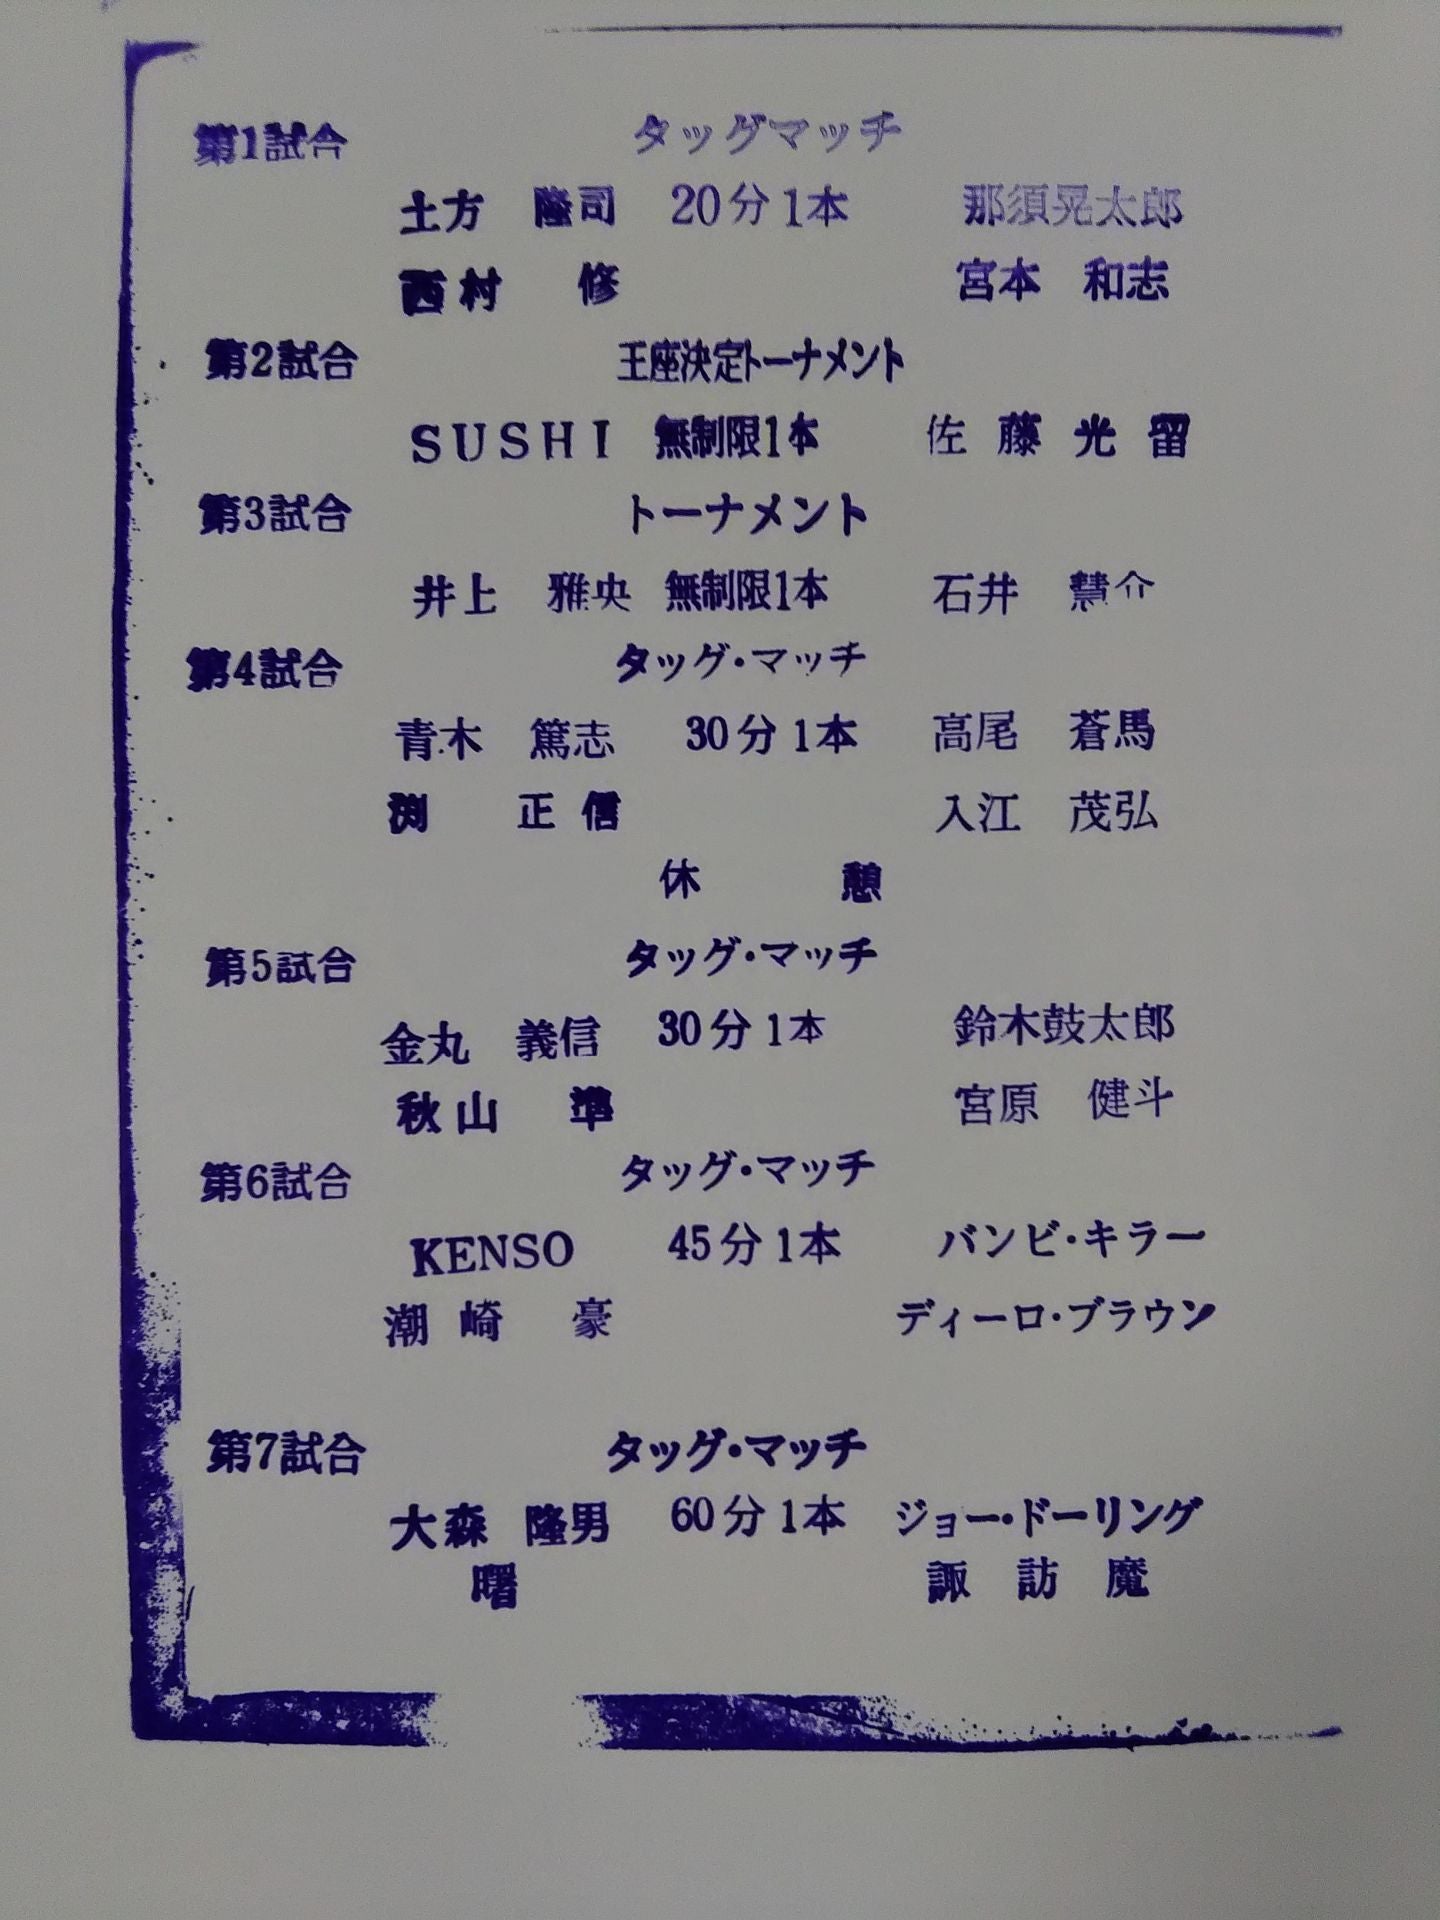 第1試合 タッグマッチ
土方 隆司 20分1本 那須晃太郎
西村 修 宮本 和志
第2試合 王座決定トーナメント
SUSHI 無制限1本 佐藤光留
第3試合 トーナメント
井上 雅央 無制限1本 石井 慧介
第4試合 タッグ・マッチ
青木 篤志 30分1本 高尾 蒼馬
渕 正信 入江 茂弘
休 憩
第5試合 タッグ・マッチ
金丸 義信 30分1本 鈴木鼓太郎
秋山 準 宮原 健斗
第6試合 タッグ・マッチ
KENSO 45分1本 バンビ・キラー
潮崎 豪 ディーロ・ブラウン
第7試合 タッグ・マッチ
大森 隆男 60分1本 ジョー・ドーリング
曙 諏訪魔